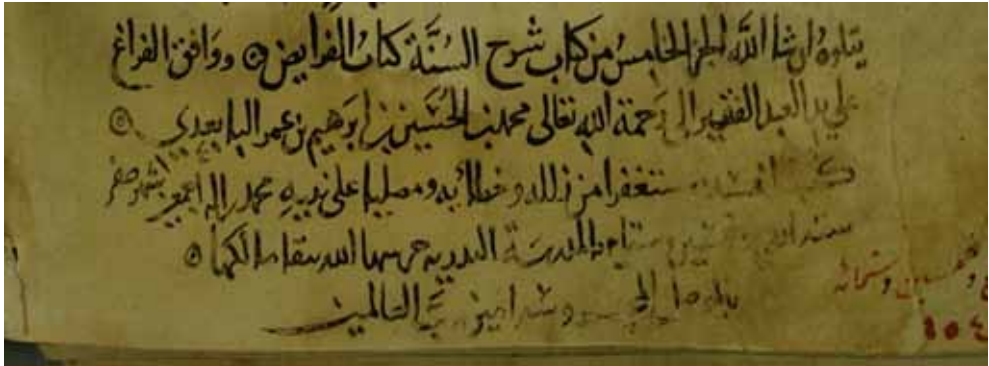 يتلوه ان شا الله الجز الخامس من كتاب شرح السنة كتاب الفرايض ووافق الفراغ
على يد العبد الفقير الى رحمة الله تعالى محمد بن الحسين بن ابرهيم بن عمر
كتبه لنفسه مستغفرا من زلله وخطائه ومصليا على نبيه محمد واله اجمعين بشهر صفر
سنة اربع وخمسين وستمايه بالمدرسة البدرية حرسها الله
بالموصل رب العالمين
وخمسين وستمائه
٦٥٤